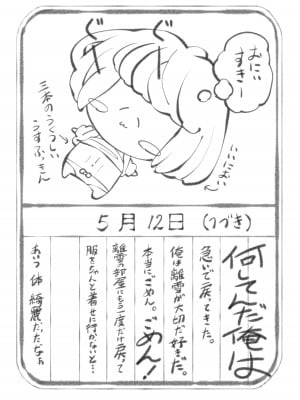 おにぃ
すきー
いいによい
三本のうつくしい
うすふっきん
5月12日(つづき)
何してんだ俺は
急いで戻ってきた。
俺は離雪が大切だ好きだ。
本当に、ごめん。ごめん!
離雪の部屋にもう一度だけ戻って
服をちゃんと着せに行かないと…
あいつ体綺麗だったなぁ